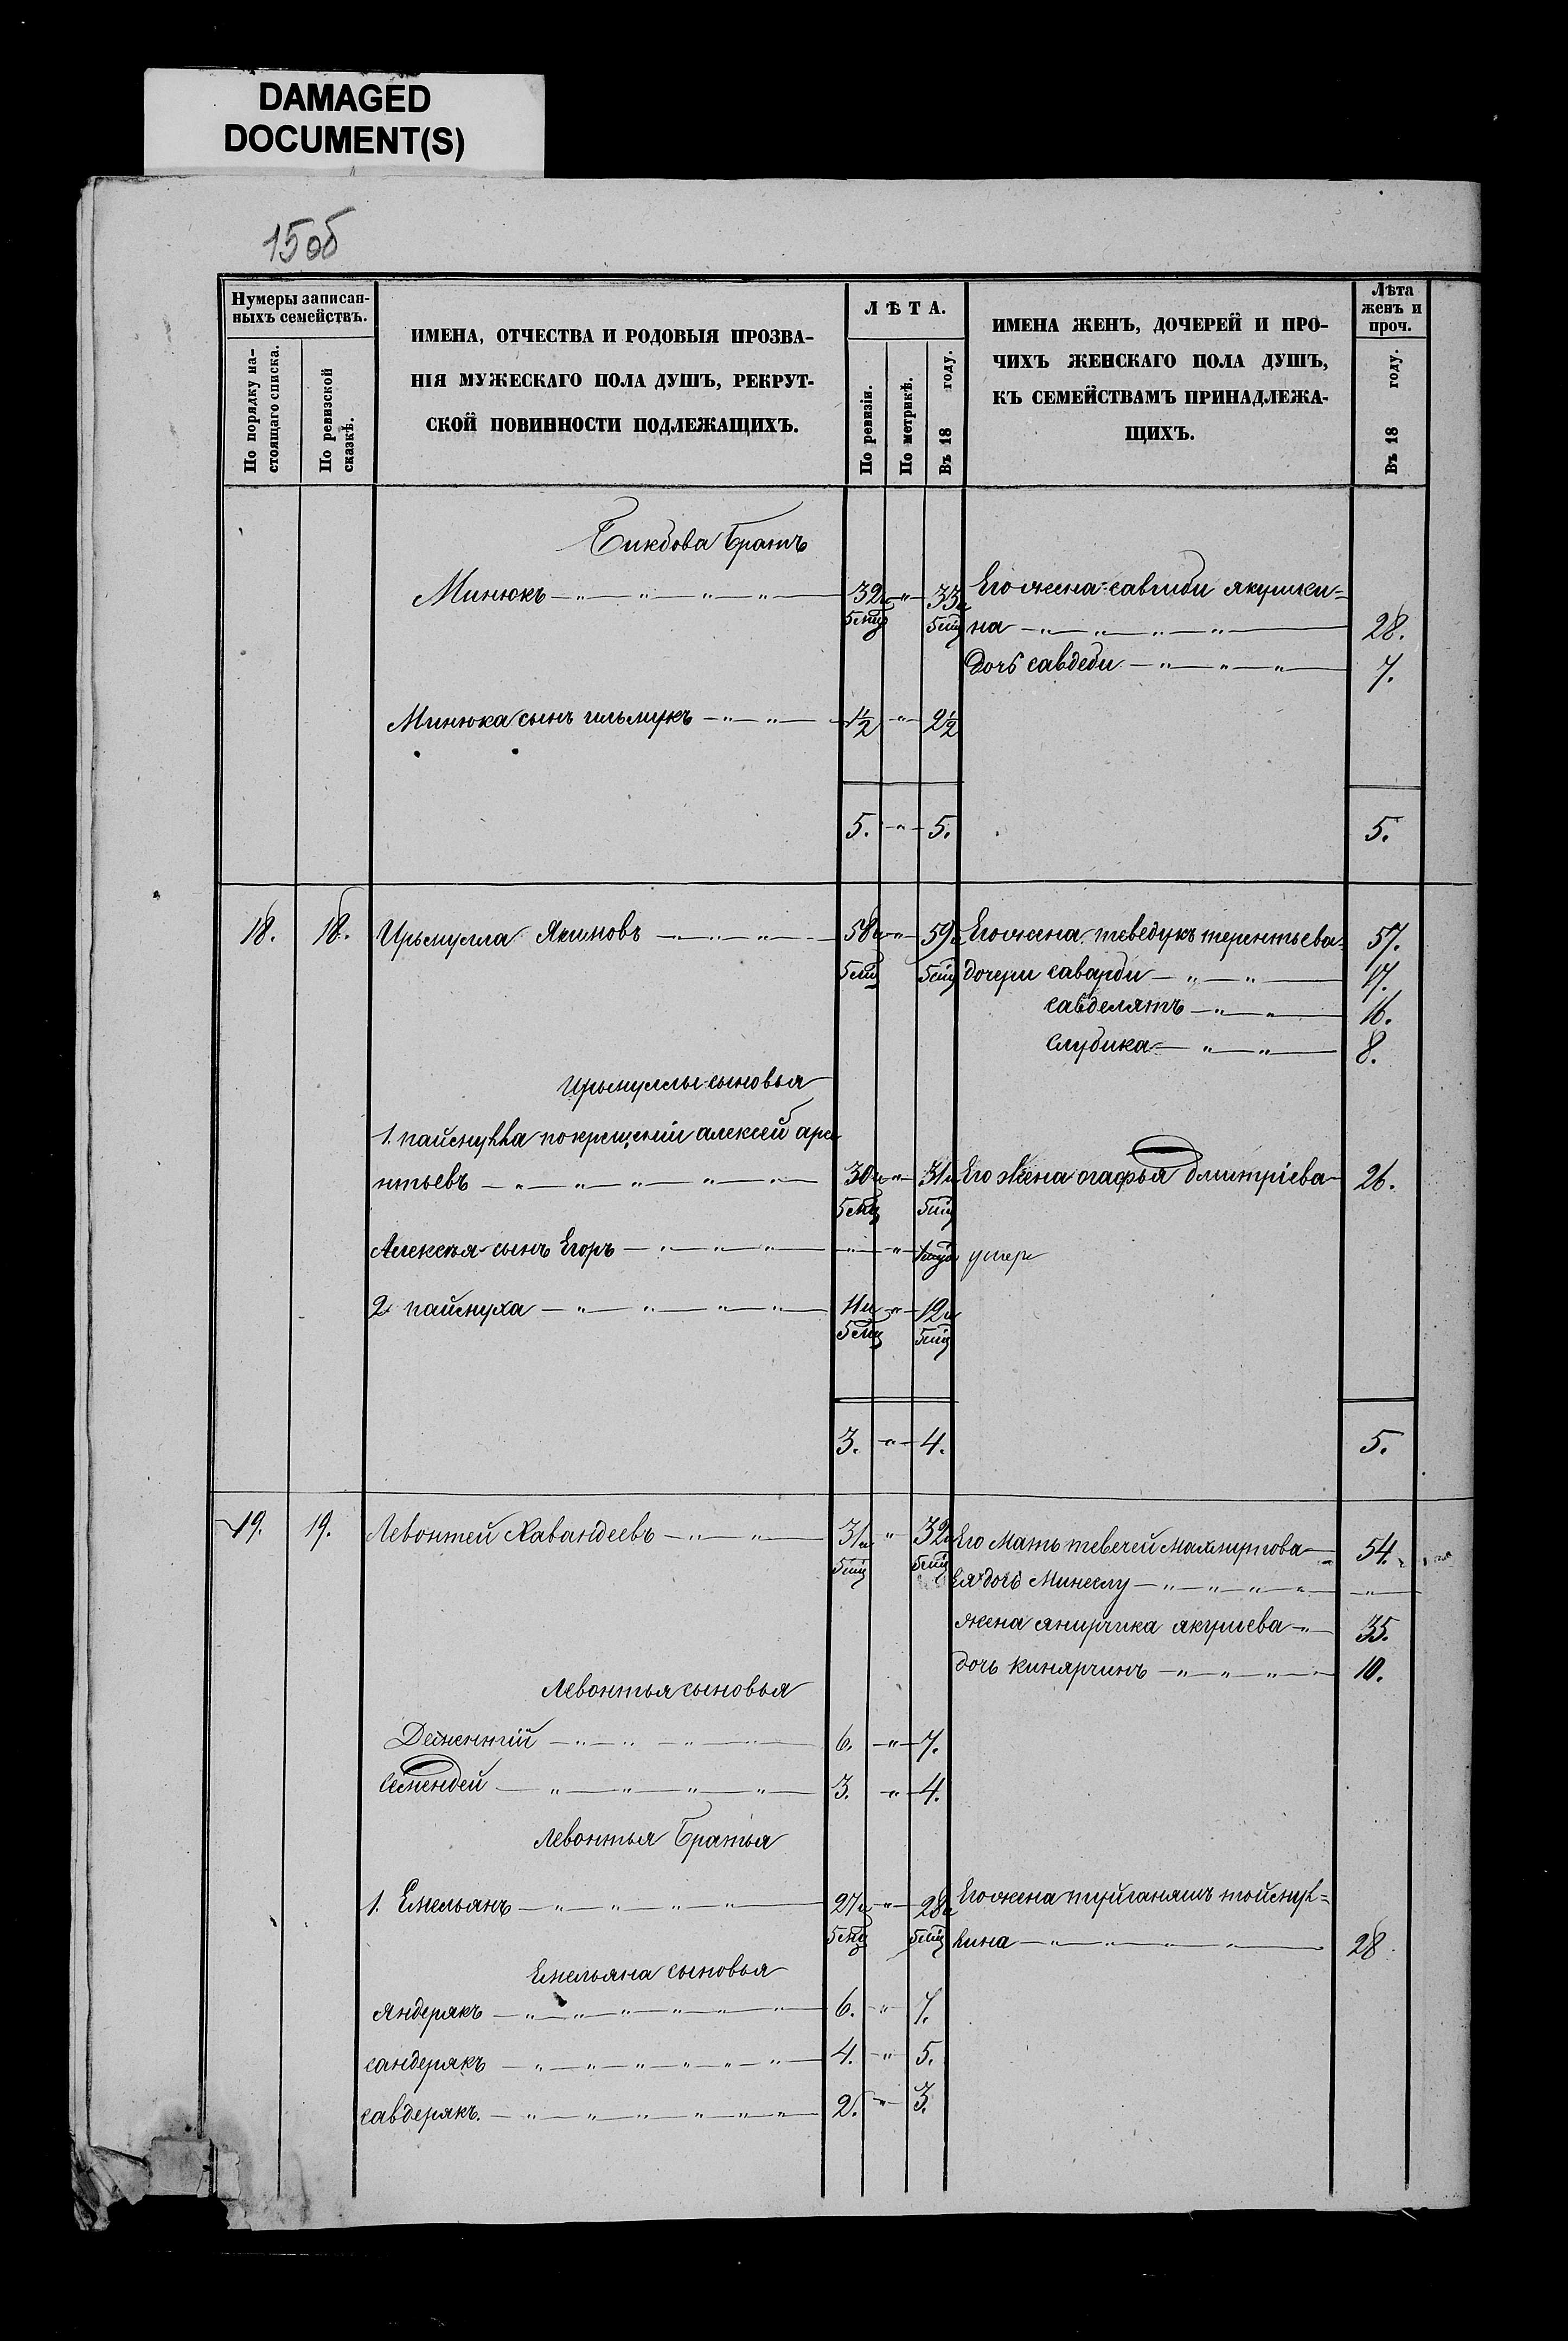 DAMAGED
DOCUMENT(S)
15 об
Нумеры записан-
ныхъ семействъ.
По порядку на-
стоящаго списка.
По ревизской
сказкѣ.
ИМЕНА, ОТЧЕСТВА И РОДОВЫЯ ПРОЗВА-
НІЯ МУЖЕСКАГО ПОЛА ДУШЪ, РЕКРУТ-
СКОЙ ПОВИННОСТИ ПОДЛЕЖАЩИХЪ.
ЛѢТА.
По ревизіи.
По метрикѣ.
Въ 18 году.
ИМЕНА ЖЕНЪ, ДОЧЕРЕЙ И ПРО-
ЧИХЪ ЖЕНСКАГО ПОЛА ДУШЪ,
КЪ СЕМЕЙСТВАМЪ ПРИНАДЛЕЖА-
ЩИХЪ.
Лѣта
женъ и
проч.
Въ 18 году.
Бикбова Братъ
Минюкъ — " — " — " — " — 32 и " 33 и Его жена якушки=
5 мц 5 мц на — " — " — " — " — 28.
дочь савдеби — " — " — " — 7.
Минюка сынъ ильмукъ — " — " — 1/2 " 2 1/2
5. " 5. 5.
18. 18. Ирьмулла Якимовъ — " — " — " — 58 и " 59 и Его жена теведукъ терентьева 57.
5 мц 5 мц дочери саварби — " — " — 17.
савделятъ — " — " — 16.
слубика — " — " — 8.
Ирьмуллы сыновья
1. паймукка покрещеніи алексей арс
нтьевъ — " — " — " — " — " — 30 и " 31 и Его жена огафья дмитріева 26.
5 мц 5 мц
Алексея сынъ Егоръ — " — " — " — " — " умер
2 паймуха — " — " — " — " — 11 и " 12 и
5 мц 5 мц
3. " 4. 5.
19. 19. Левонтей Хавандеевъ — " — " — 31 и " 32 и Его мать тевечей 54.
5 мц 5 мц Ея дочь Минеслу — " — " — " — " — "
жена янирчика якушева — " — 35.
дочь кинярчинъ — " — " — " — " — 10.
Левонтья сыновья
Дементій — " — " — " — " — 6. " 7.
Семендей — " — " — " — " — 3. " 4.
Левонтья Братья
1. Емельянъ — " — " — " — " — 27 и " 28 и Его жена пуйганяшъ тоймук=
5 мц 5 мц кина — " — " — " — " — 28.
Емельяна сыновья
яндерякъ — " — " — " — " — " — " — 6. " 7.
сандерякъ — " — " — " — " — " — " — 4. " 5.
савдерякъ. — " — " — " — " — " — " — 2. " 3.